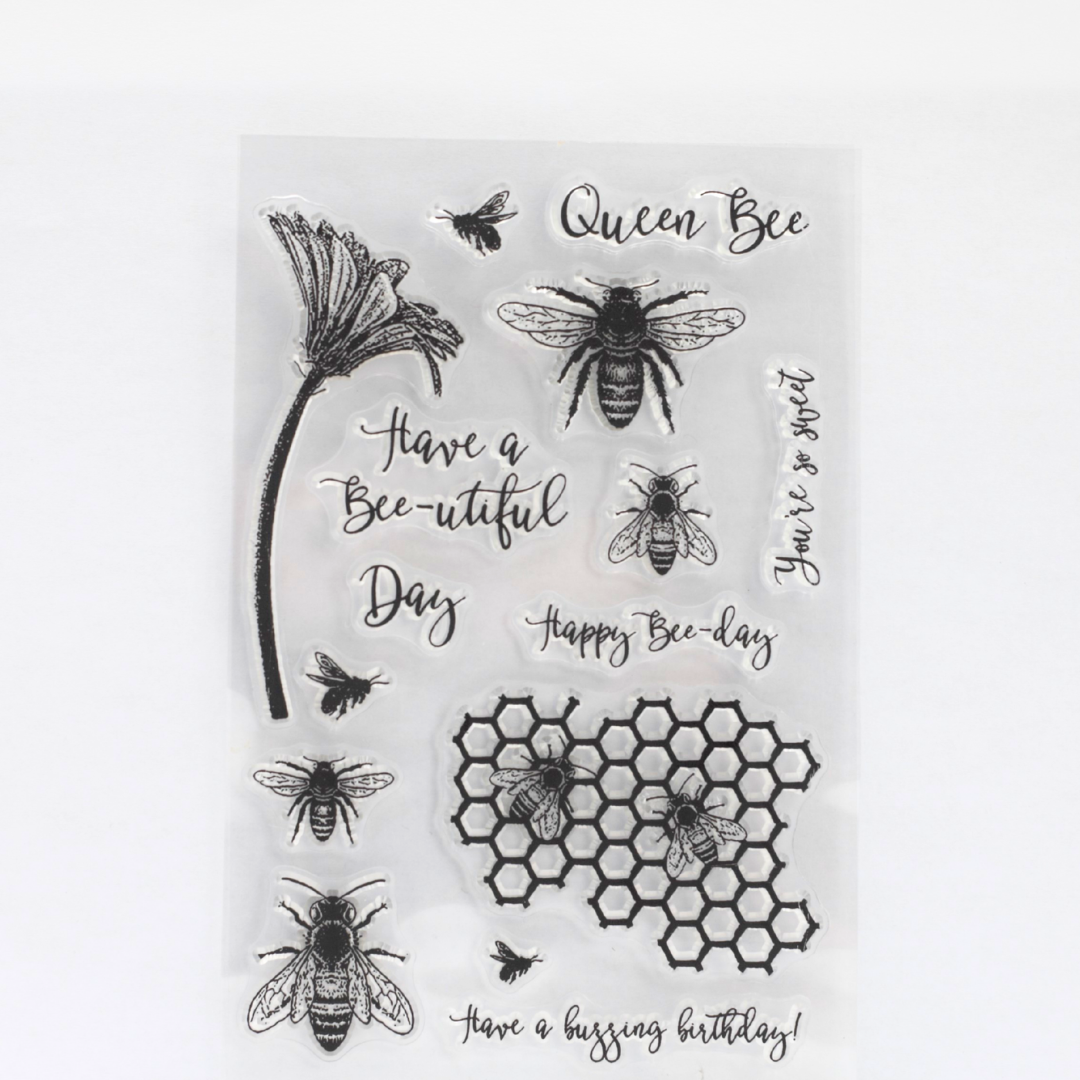 Queen Bee
Have a
Bee-utiful
Day
You're so sweet
Happy Bee-day
Have a buzzing birthday!